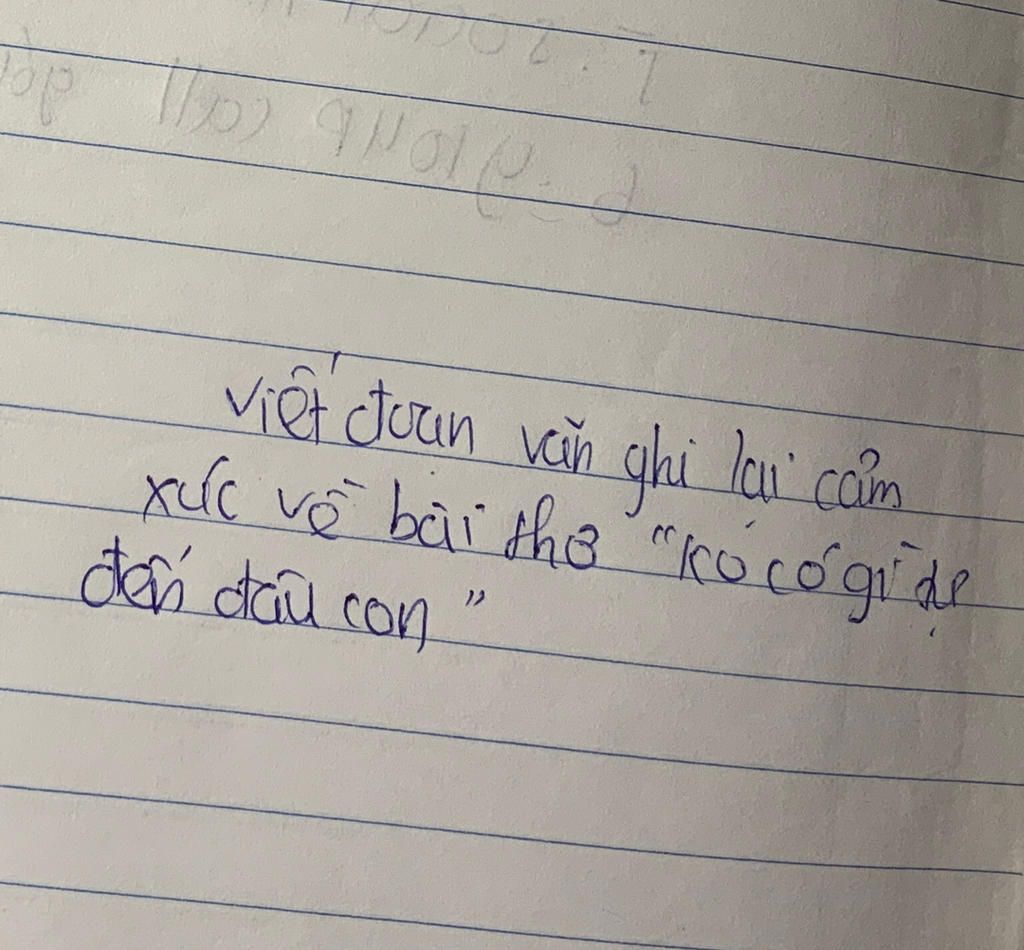 viết đoan văn ghi lại cảm
xúc về bài thơ "Ko có gì
đến đâu con"